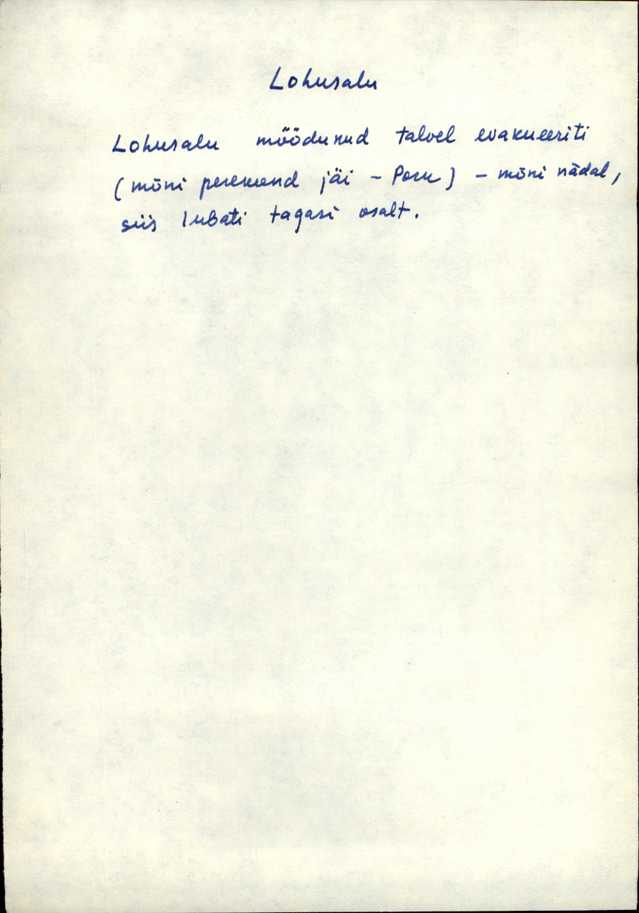 Lohusalu
Lohusalu möödunud talvel evakueeriti
(mõni perekond jäi - Poru) - mõni nädal,
siis lubati tagasi osalt.